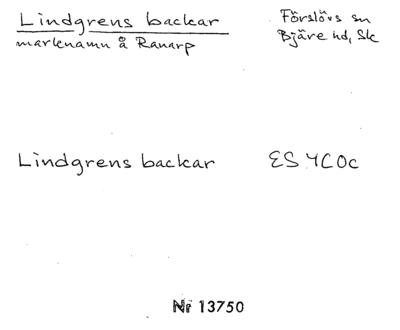 Lindgrens backar
marknamn å Ranarp
Förslövs sn
Bjäre hd, Sk
Lindgrens backar
ES 4C0c
Nr 13750